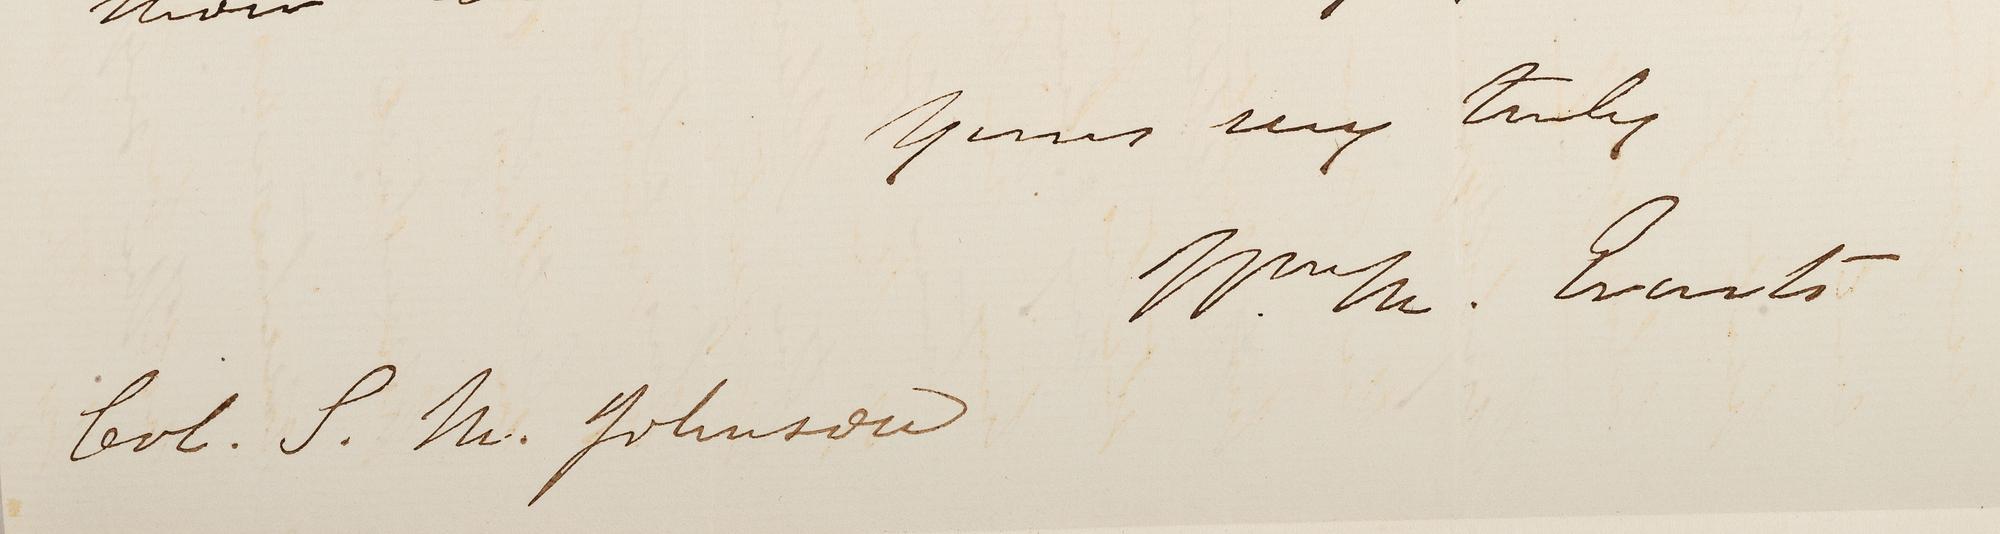 Yours very truly
Wm. M. Evarts
Col. S. M. Johnson